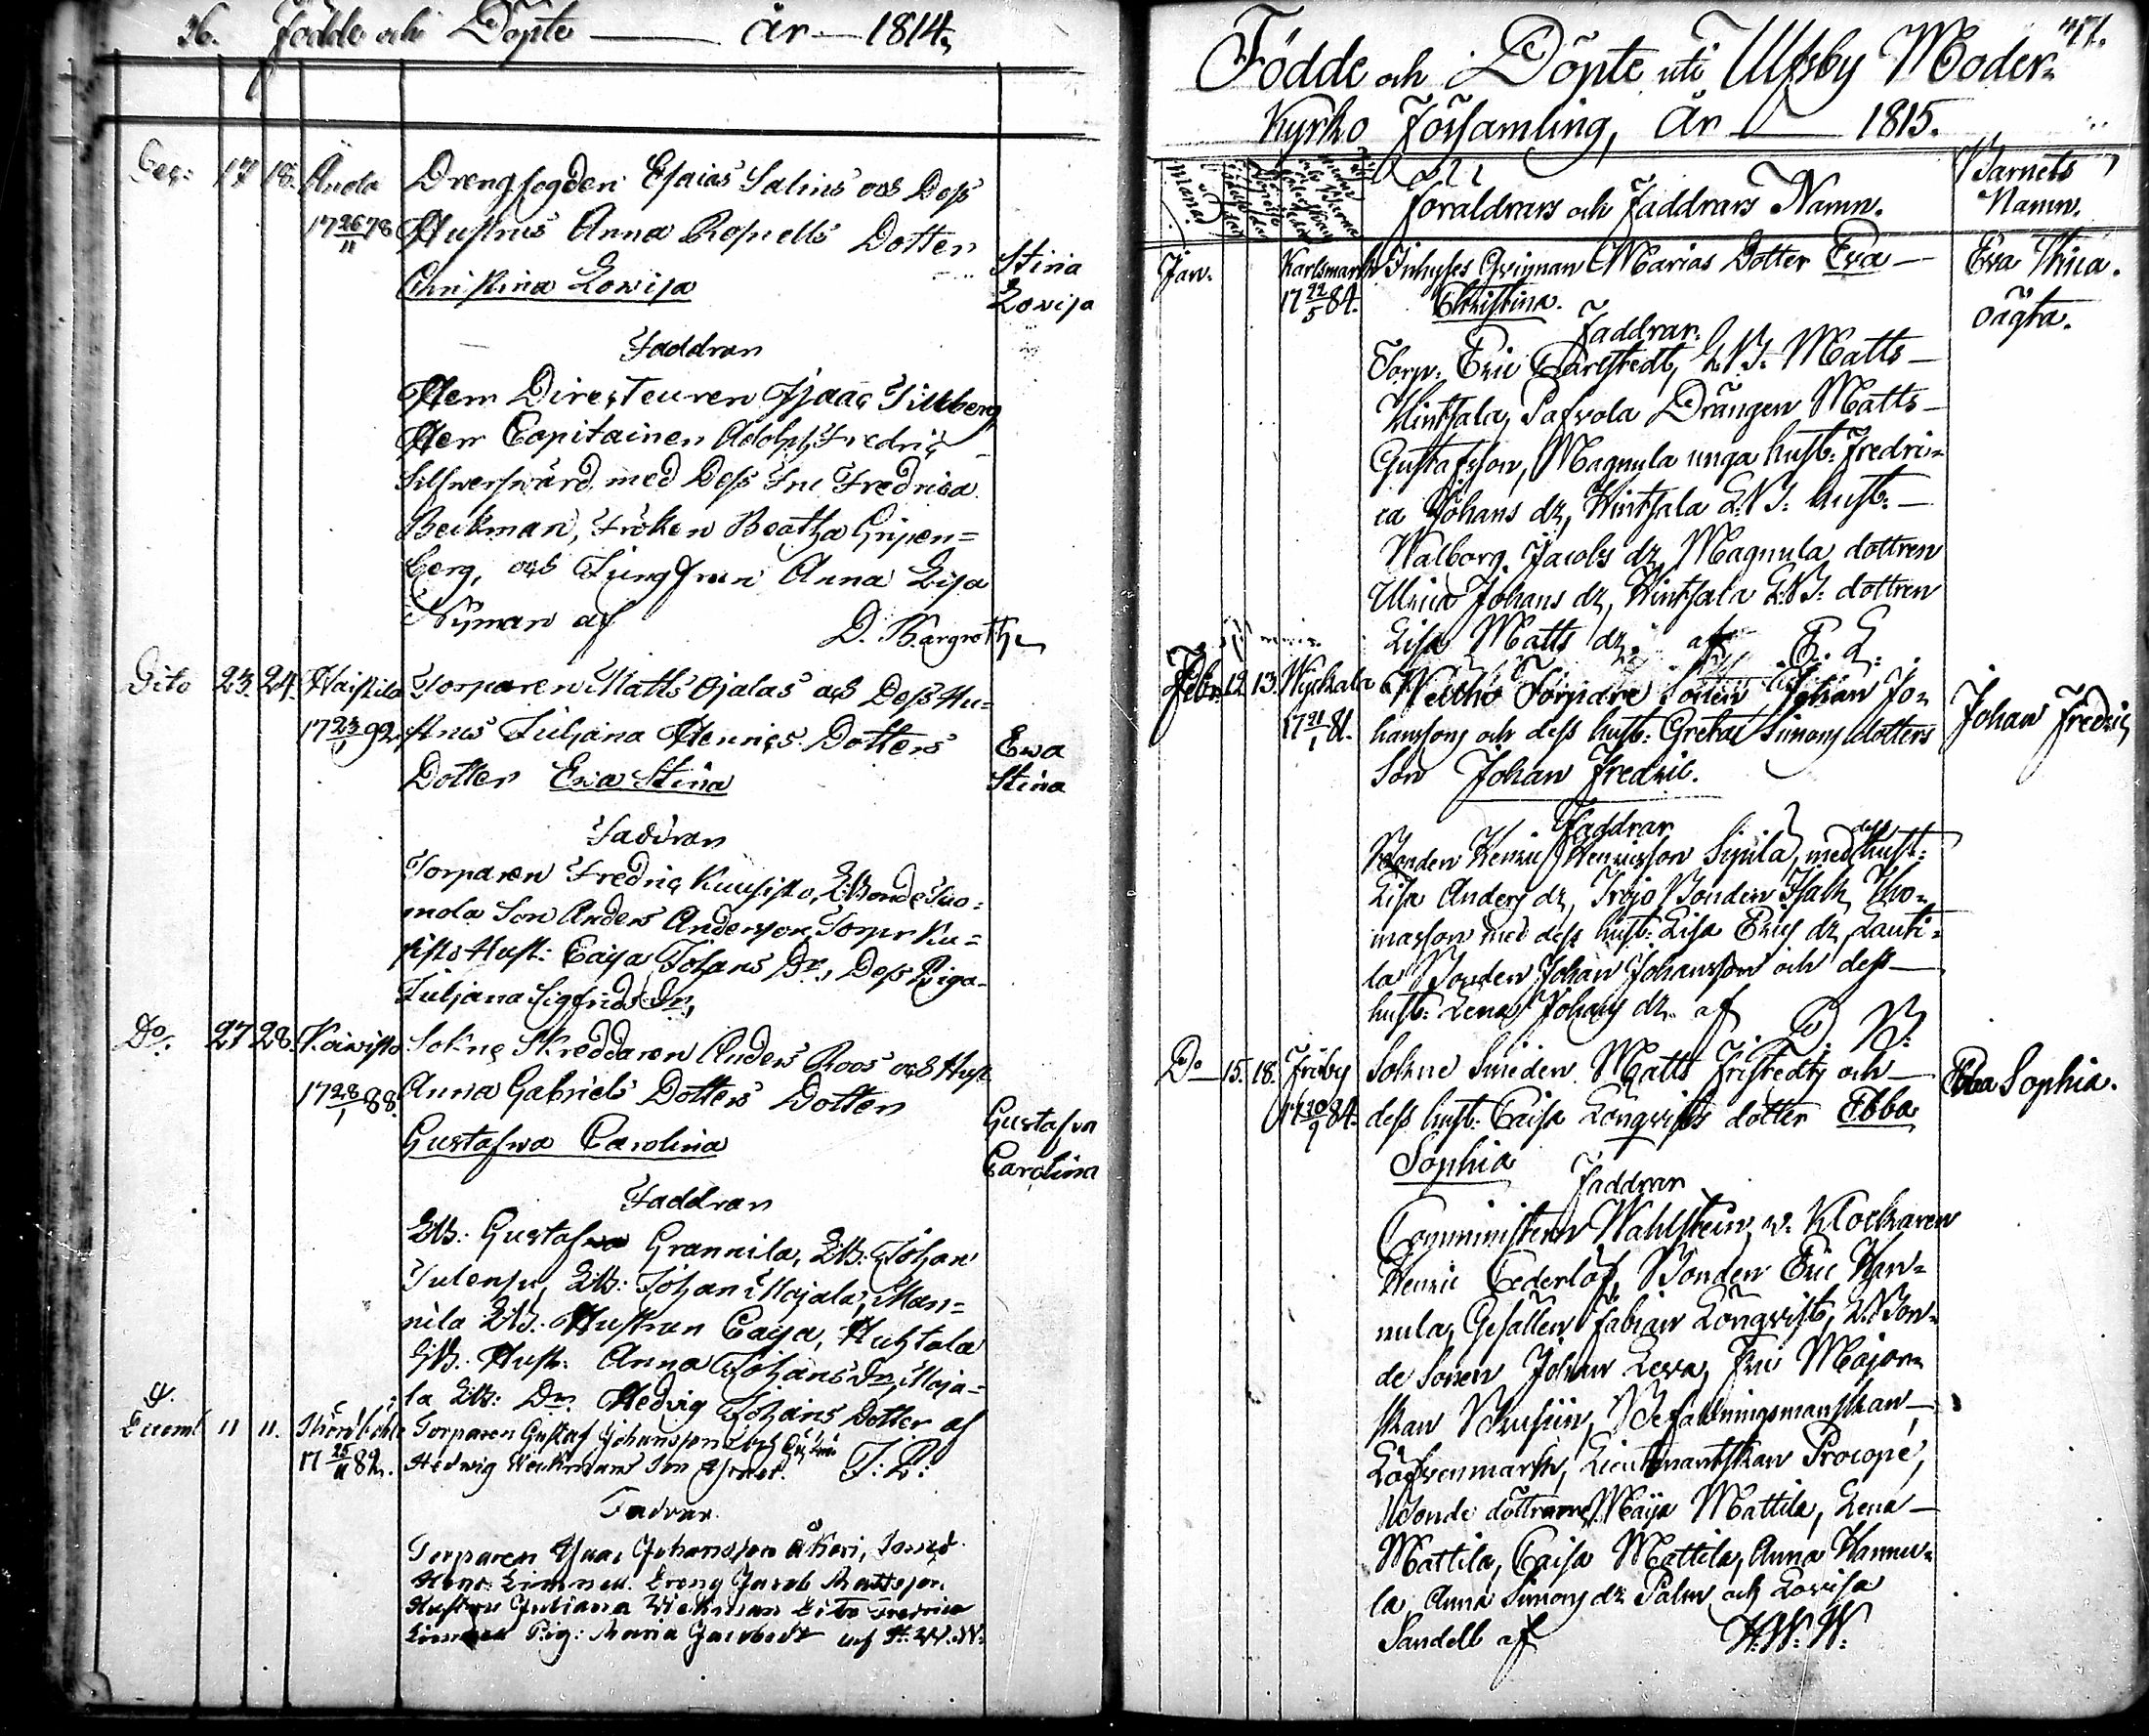 36. Födde och Döpte — år — 1814.
Dec: 17 18. Anola Drengfogden Esaias Salins och Dess
17 26/11 78 Hustrus Anna Rosnells Dotter
Christina Lowisa
Stina
Lowisa
Faddrar
Herr Directeuren Isaac Tillberg
Herr Capitainen Adolph Fredric
Silfwerswärd med Dess Fru Fredrica
Beckman, Fröken Beatha Gripen=
berg, och Jungfrun Anna Lisa
Nyman af D. Bergroth
Dito 23. 24. Haistila Torparen Matts Ojalas och Dess Hu=
17 23/1 92. strus Juljana Henrics Dotters
Dotter Ewa Stina
Ewa
Stina
Faddrar
Torparen Fredric Kuusisto, LBonde Tuo=
mola Son Anders Andersson, Torpr Ku=
sisto Hust: Cajsa Johans Dr, Dess Piga
Juljana Sigfrids Dr,
Do. 27 28. Koiwisto Sokne Skreddaren Anders Roos och Hust
17 28/1 88. Anna Gabriels Dotters Dotter
Gustafwa Carolina
Gustafva
Carolina
Faddrar
LB: Gustaf Grannila, LB: Johan
LB: Johan Mojala, Man=
nila LB. Hustrun Cajsa, Huhtala
LB. Hust: Anna Johans Dr, Moja=
la LB: Dr. Hedvig Johans Dotter af
F: B:
Decemb 11 11. Torparen Gustaf Johansson och hustru
17 25/11 82. Hedwig Wickmans Son
Fadrar.
Torparen Isaac Johansson
Dreng Jacob Mattsson
Hustru Juliana Wickman Dito Fredrica
Pig: Maria af H. W. W.
47.
Födde och Döpte uti Ulfsby Moder=
Kyrko Församling, År — 1815.
Månad
Föräldrars och Faddrars Namn.
Barnets
Namn.
Jan. Karlsmark Inhyses Qvinnan Marias Dotter Eva —
17 22/5 84. Christina.
Eva Stina.
oägta.
Faddrar.
Torp: Eric Carlstedt, L.B. Matts —
Hintsala, Pafvola Drängen Matts —
Gustafsson, Magnula unga hust: Fredri=
ca Johans dr, Hintsala L.B: hust: —
Walborg Jacobs dr, Magnula dottren
Ulrica Johans dr, Hintsala L.B: dottren
Lisa Matts dr. af E. L.
Febr. 12. 13. Torpare Sonen Johan Jo=
17 21/1 81. hanssons och dess hust: Greta Simons dotters
Son Johan Fredric.
Johan Fredric
Faddrar
Bonden Henric Henricsson Sipila, med dess hust:
Lisa Anders dr, Bonden Isak Tho=
masson med dess hust: Lisa Erics dr, Lauti=
la Bonden Johan Johansson och dess —
hust: Lena Johans dr. af D. B:
Do 15. 18. Friby Sokne Smeden Matts Fristedts och —
17 20/9 84. dess hust: Caisa Lönqvists dotter Ebba
Sophia
Ebba Sophia.
Faddrar
Comministern Wahlstein, v. Klockaren
Henric Cederlöf, Bonden Eric Han=
nula, Gesällen Fabian Lönqvist, L.Bon=
de sonen Johan Leva, Fru Major=
skan Befallningsmanskan —
Löfvenmark, Lieutenantskan Procopé,
Bonde döttrarne Maija Mattila, Lena —
Mattila, Caisa Mattila, Anna Hannu=
la Anna Simons dr Palm och Lovisa
Sandell af H. W. W.